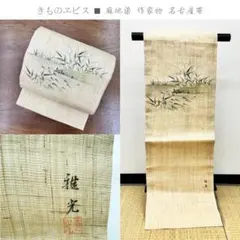 きものエビス ■ 麻地染 作家物 名古屋帯
雅光